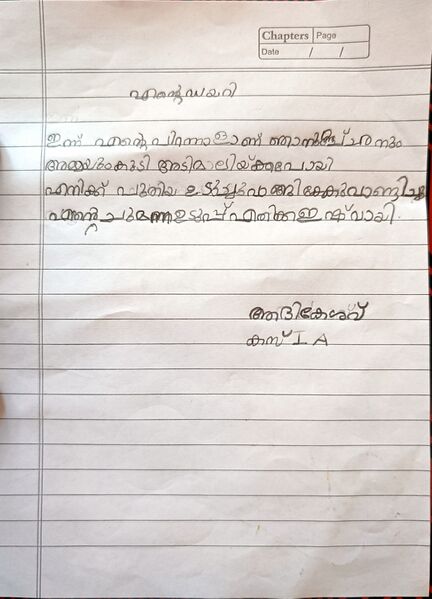 Chapters Page
Date / /
എന്റെ ഡയറി
ഇന്ന് എന്റെ പിറന്നാളാണ് ഞാനും
അമ്മയുംകൂടി അടിമാലിയ്ക്കുപോയി
എനിക്ക് പുതിയ
എന്റെ ചുമന്ന ഉടുപ്പ്
ആദികേശവ്
ക്ലസ് I A